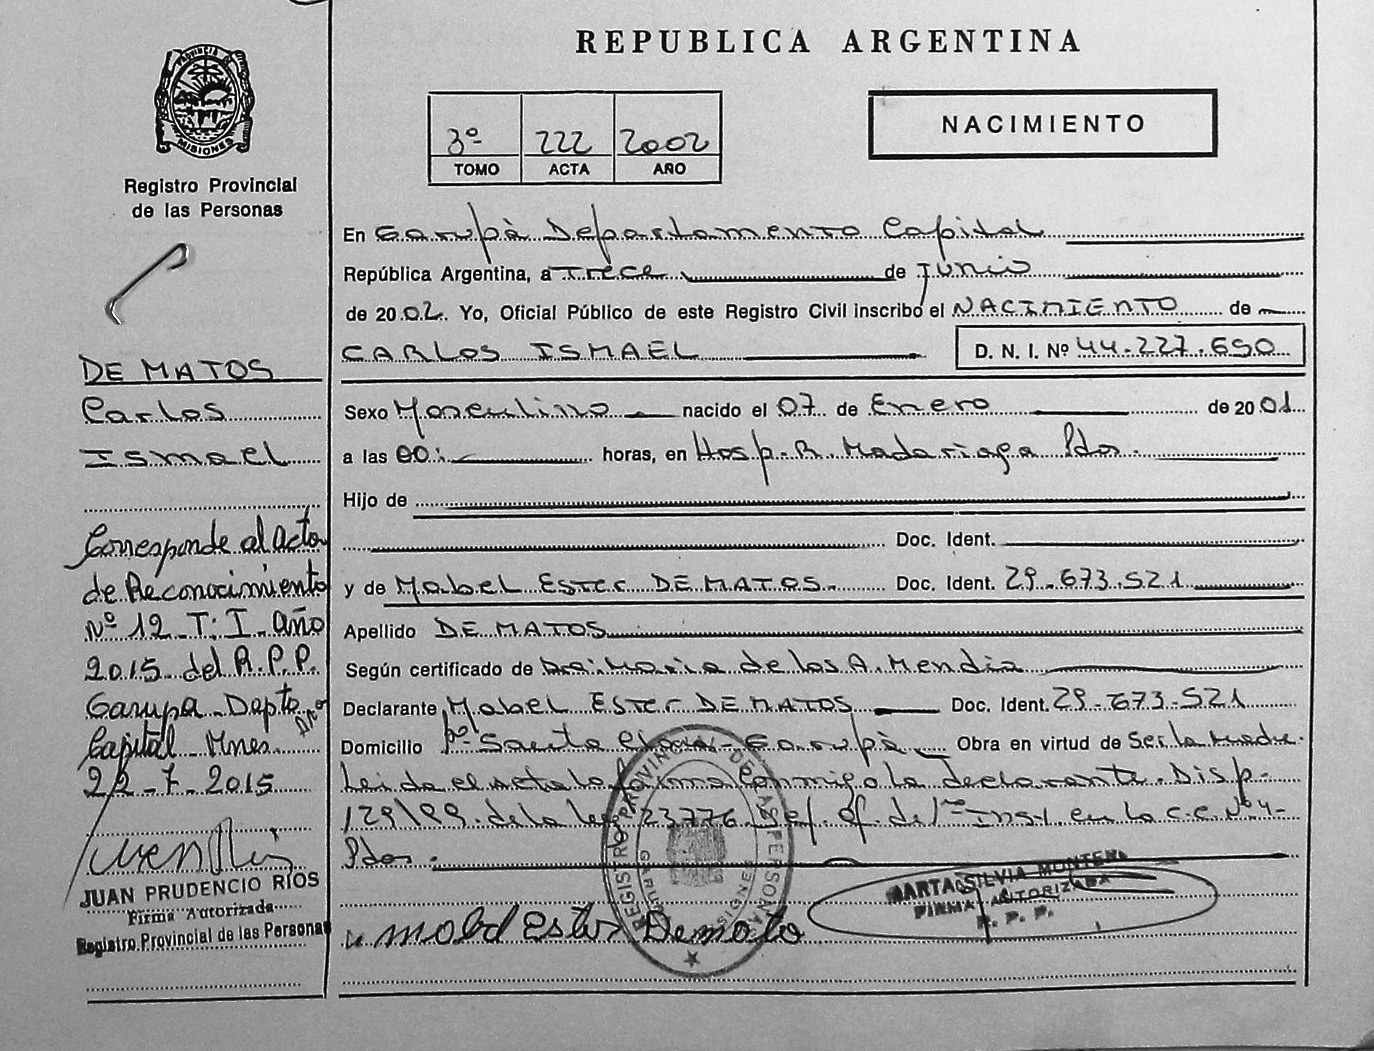 REPUBLICA ARGENTINA
PROVINCIA DE MISIONES
Registro Provincial
de las Personas
3º 222 2002
TOMO ACTA AÑO
NACIMIENTO
En Garupà Departamento Capital
República Argentina, a Trece de Junio
de 2002. Yo, Oficial Público de este Registro Civil inscribo el NACIMIENTO de
CARLOS ISMAEL D. N. I. Nº 44-227-650
Sexo Masculino nacido el 07 de Enero de 2001
a las 00: horas, en Hosp. R. Madariaga Pdas.
Hijo de
Doc. Ident.
y de Mabel Ester DE MATOS Doc. Ident. 29-673.521
Apellido DE MATOS
Según certificado de Dra. Maria de los A. Mendia
Declarante Mabel Ester DE MATOS Doc. Ident. 29-673-521
Domicilio Bº Santa Clara - Garupà Obra en virtud de Ser la Madre.
Leida el acta la firma conmigo la declarante. Disp.
129/99 de la ley 23776 of. de Insc. en la C.C. Nº 4-
Pdas.
DE MATOS
Carlos
Ismael
Corresponde al Acta
de Reconocimiento
Nº 12 T: I Año
2015 del R.P.P.
Garupa Depto
Capital Mnes
22-7-2015
JUAN PRUDENCIO RIOS
Firma Autorizada
Registro Provincial de las Personas
REGISTRO PROVINCIAL DE LAS PERSONAS
GARUPA MISIONES
MARTA SILVIA
FIRMA AUTORIZADA
R. P. P.
Mabel Ester De mato